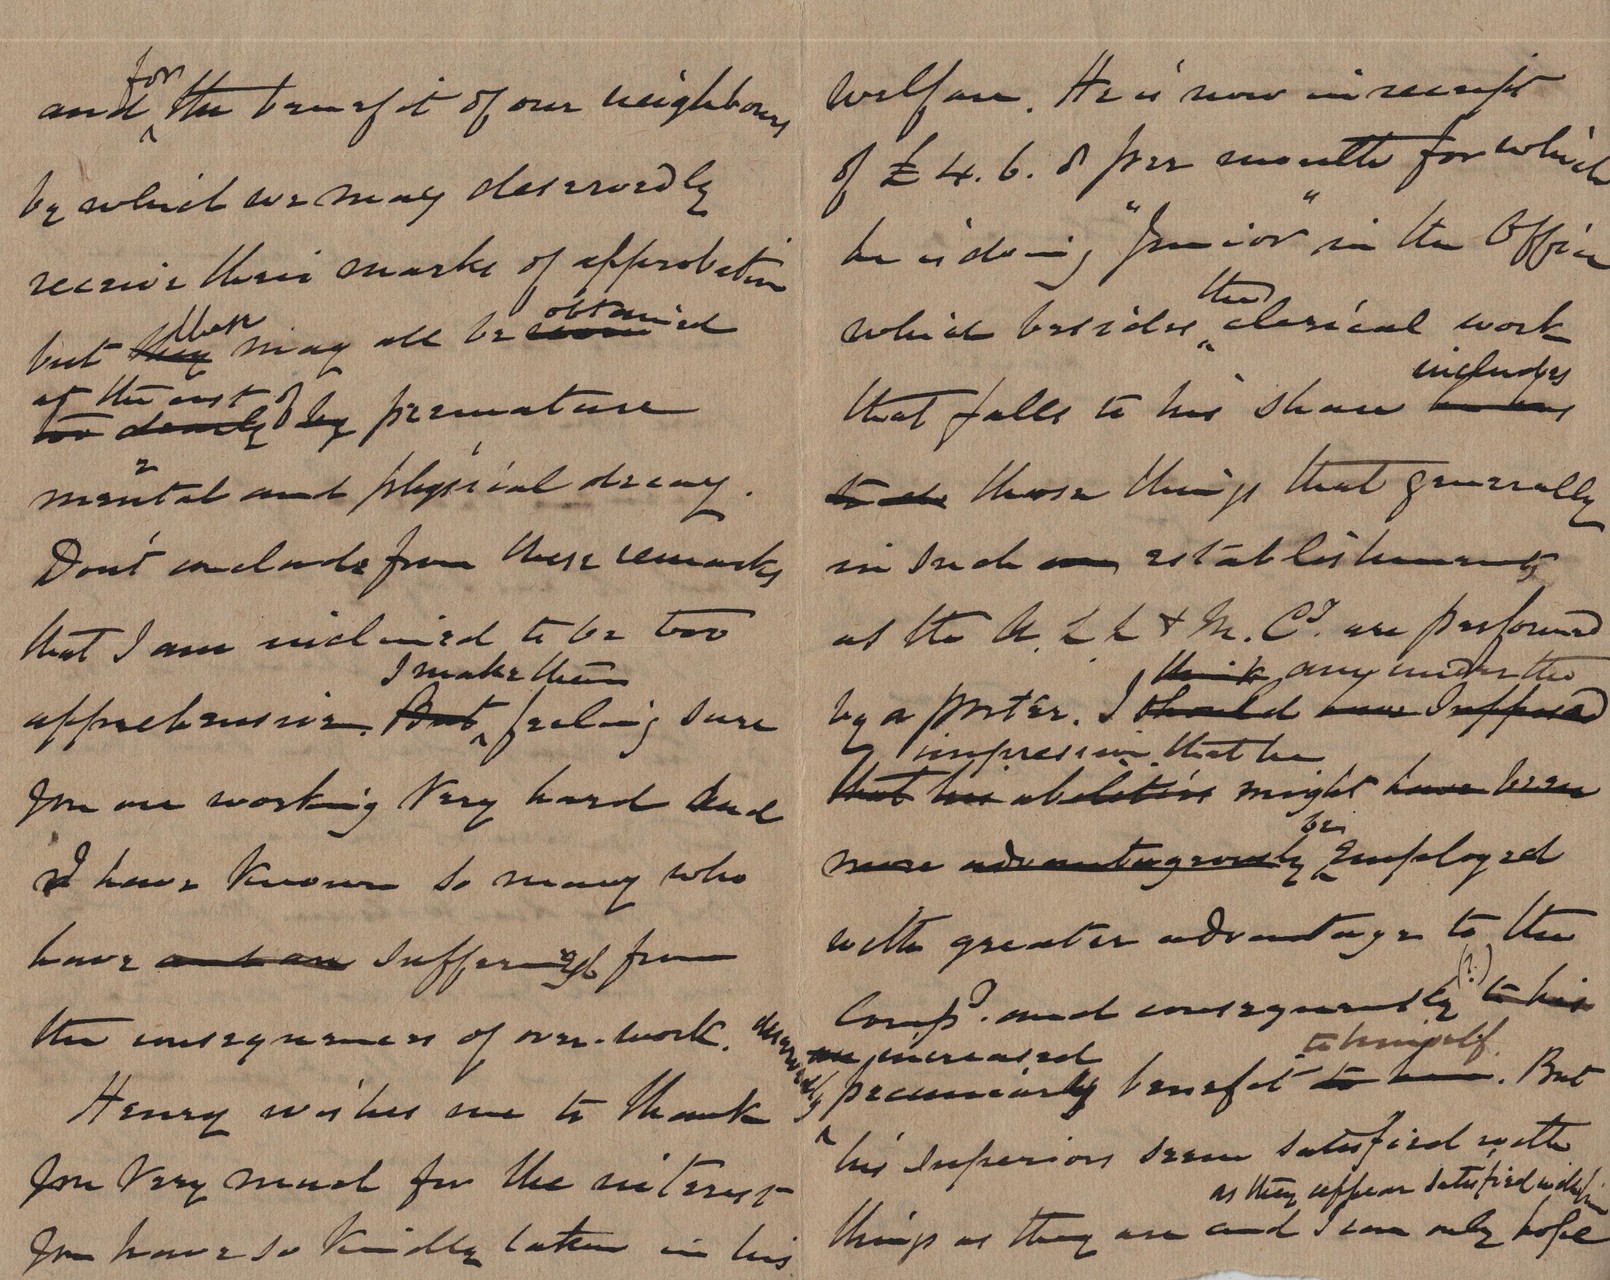 for
and the benefit of our neighbours
by which we may deservedly
receive their marks of approbation
these obtained
but they may all be
at the cost of
too dearly by premature
mental and physical decay.
Don't conclude from these remarks
that I am inclined to be too
I make them
apprehensive. But feeling sure
you are working very hard and
I have known so many who
have suffered from
the consequences of over-work.
Henry wishes me to thank
you very much for the interest
you have so kindly taken in his
welfare. He is now in receipt
of £4.6.8 per month for which
he is doing "Junior" in the Office
the
which besides clerical work
includes
that falls to his share
to do those things that generally
in such an establishments
as the N. Z. L & M. Co. are performed
think am under the
by a porter. I should have supposed
impression that he
that his abilities might have been
be
more advantageously Employed
with greater advantage to the
(?)
Compy. and consequently to his
deservedly
an increased to himself
pecuniary benefit to him. But
his superiors seem satisfied with
as they appear satisfied with
things as they are and I can only hope